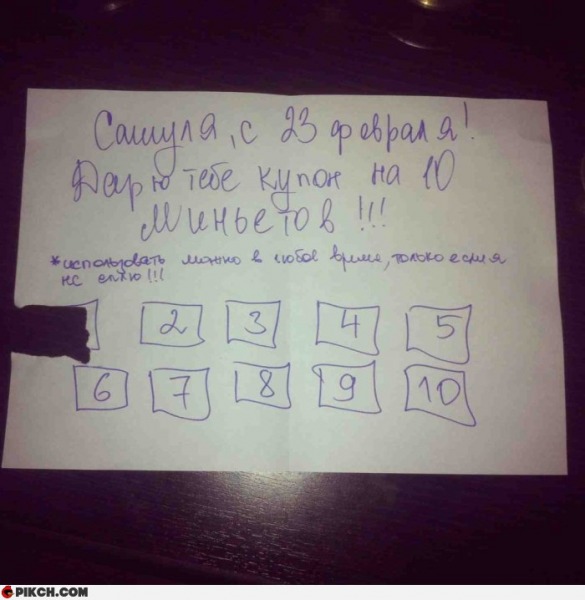 Сашуля, с 23 февраля!
Дарю тебе купон на 10
миньетов!!!
*использовать можно в любое время, только если я
не сплю!!!
2 3 4 5
6 7 8 9 10
PIKCH.COM